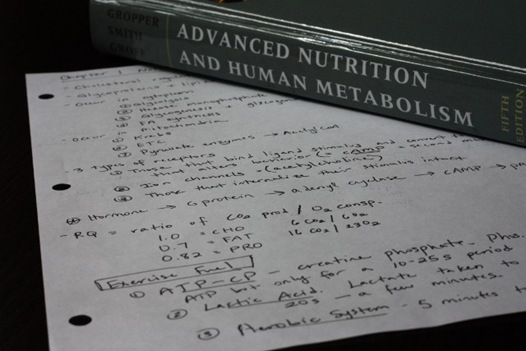 GROPPER
SMITH
GROFF
ADVANCED NUTRITION
AND HUMAN METABOLISM
FIFTH
EDITION
Chapter 1
- Glycoproteins
- Occur in cytoplasm
① Glycolysis
② Hexose monophosphate
③ Glycogenesis
④ FA synthesis
- Occur in mitochondria
① Krebs
② ETC
③ Pyruvate enzyme → AcetylCoA
- 3 types of receptors
① Those that bind ligand stimulus and convert
② Ion channels (acetylcholine)
③ Those that internalize their stimulus intact
Hormone → G protein → adenyl cyclase → cAMP →
- RQ = ratio of CO2 prod / O2 consp.
1.0 = CHO 6CO2/6O2
0.7 = FAT 16CO2/23O2
0.82 = PRO
Exercise Fuel
① ATP-CP - creatine phosphate. Phos.
ATP but only for a 10-25s period
② Lactic Acid. Lactate taken to
20s - a few minutes.
③ Aerobic System - 5 minutes